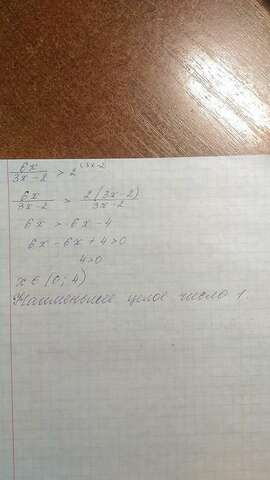 6x/(3x-2) > 2 (3x-2
6x/(3x-2) > 2(3x-2)/(3x-2)
6x > 6x-4
6x-6x+4>0
4>0
x∈(0; 4)
Наименьшее целое число 1.